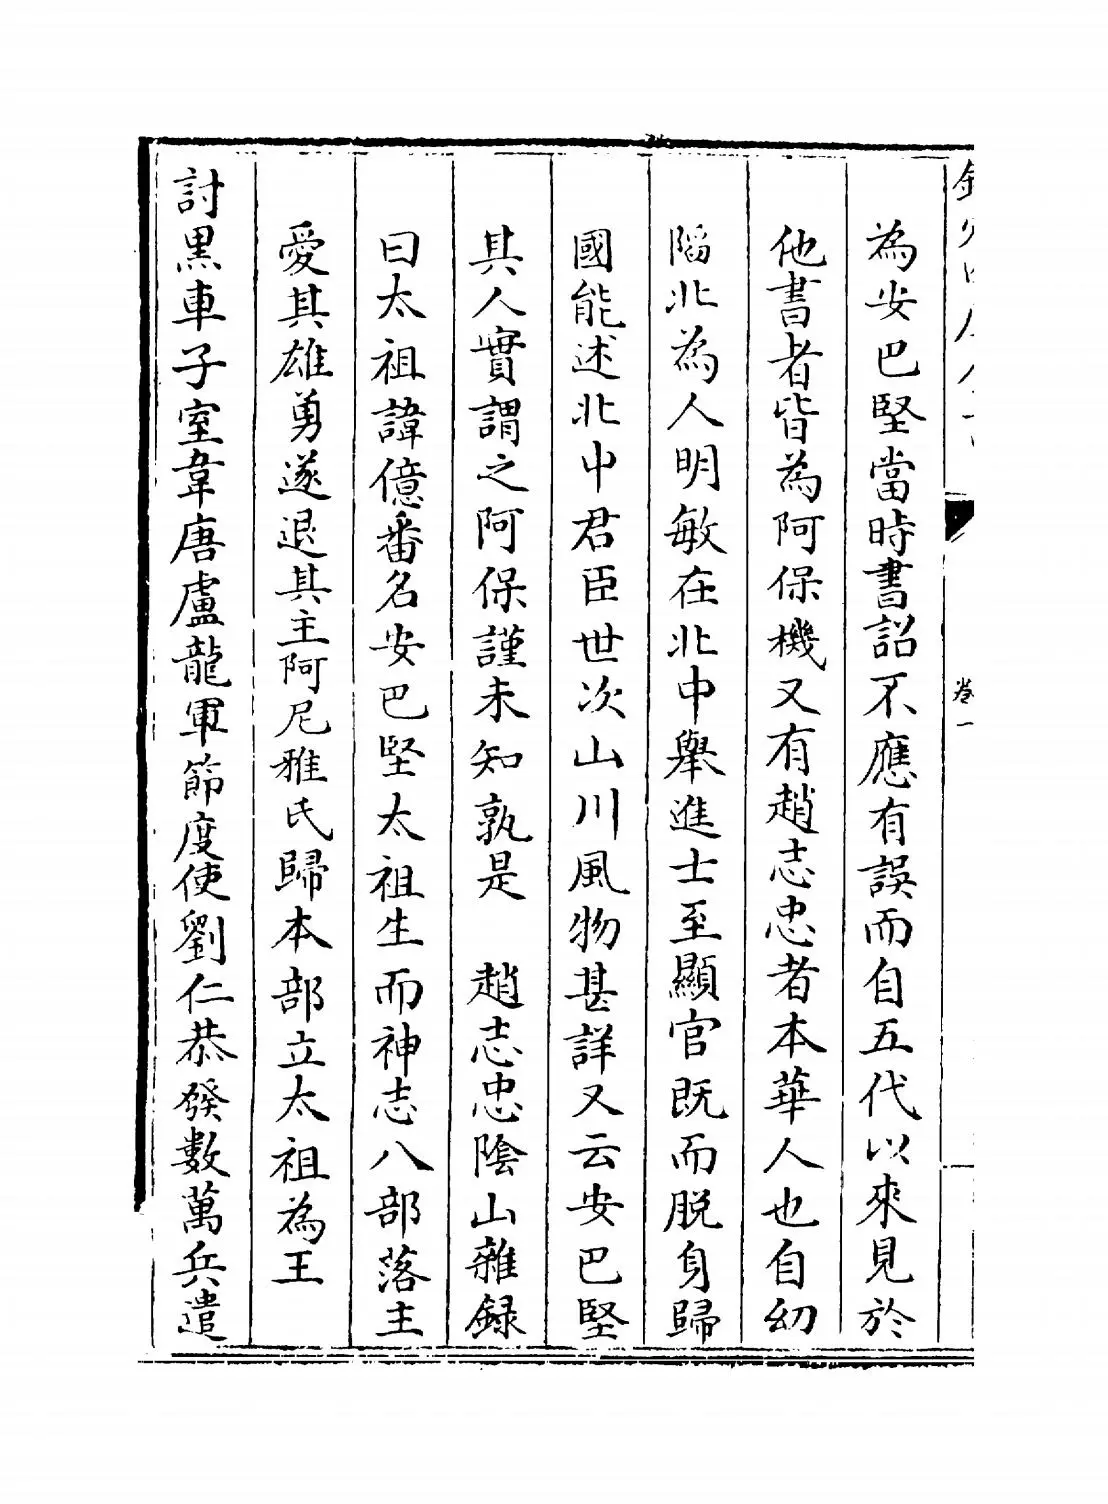 卷一
為安巴堅當時書詔不應有誤而自五代以來見於
他書者皆為阿保機又有趙志忠者本華人也自幼
陷北為人明敏在北中舉進士至顯官既而脫身歸
國能述北中君臣世次山川風物甚詳又云安巴堅
其人實謂之阿保謹未知孰是　趙志忠陰山雜録
曰太祖諱億番名安巴堅太祖生而神志八部落主
愛其雄勇遂退其主阿尼雅氏歸本部立太祖為王
討黒車子室韋唐盧龍軍節度使劉仁恭發數萬兵遣